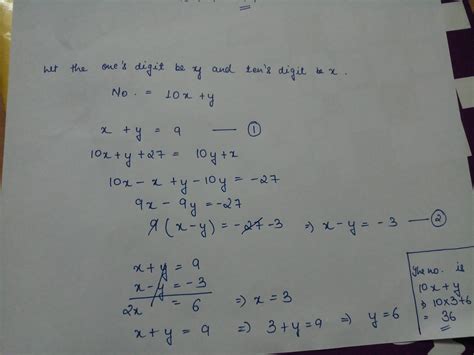 Let the one's digit be y and ten's digit be x.
No. = 10x + y
x + y = 9 — ①
10x + y + 27 = 10y + x
10x - x + y - 10y = -27
9x - 9y = -27
9(x - y) = -27 -3 => x - y = -3 — ②
x + y = 9
x - y = -3
2x = 6 => x = 3
x + y = 9 => 3 + y = 9 => y = 6
The no. is
10x + y
=> 10×3+6
= 36